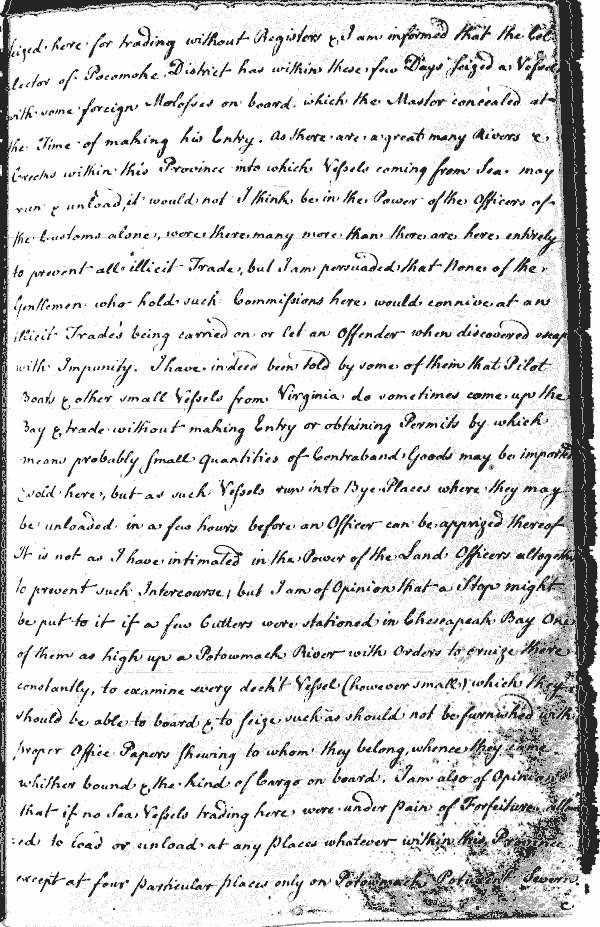 seized here for trading without Registers & I am informed that the Col-
lector of Pocomoke District has within these few Days seized a Vessel
with some foreign Molosses on board which the Master concealed at
the Time of making his Entry. As there are a great many Rivers &
Creeks within this Province into which Vessels coming from Sea may
run & unload, it would not I think be in the Power of the Officers of
the Customs alone, were there many more than there are here, entirely
to prevent all illicit Trade, but I am persuaded that None of the
Gentlemen who hold such Commissions here would connive at an
illicit Trade's being carried on or let an Offender when discovered escape
with Impunity. I have indeed been told by some of them that Pilot
Boats & other small Vessels from Virginia do sometimes come up the
Bay & trade without making Entry or obtaining Permits by which
means probably small Quantities of Contraband Goods may be imported
& sold here, but as such Vessels run into Bye Places where they may
be unloaded in a few hours before an Officer can be apprized thereof
It is not as I have intimated in the Power of the Land Officers altogether
to prevent such Intercourse; but I am of Opinion that a Stop might
be put to it if a few Cutters were stationed in Cheseapeak Bay One
of them as high up as Potowmack River with Orders to cruize there
constantly, to examine every deck't Vessel (however small) which they
should be able to board & to seize such as should not be furnished with
proper Office Papers shewing to whom they belong, whence they came
whither bound & the kind of Cargo on board. I am also of Opinion
that if no Sea Vessels trading here were under pain of Forfeiture allow
-ed to load or unload at any places whatever within this Province
except at four particular places only on Potowmack Potuxent Severn